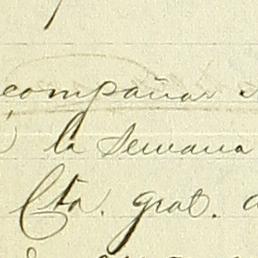 compañar
la semana
Cta. gral.